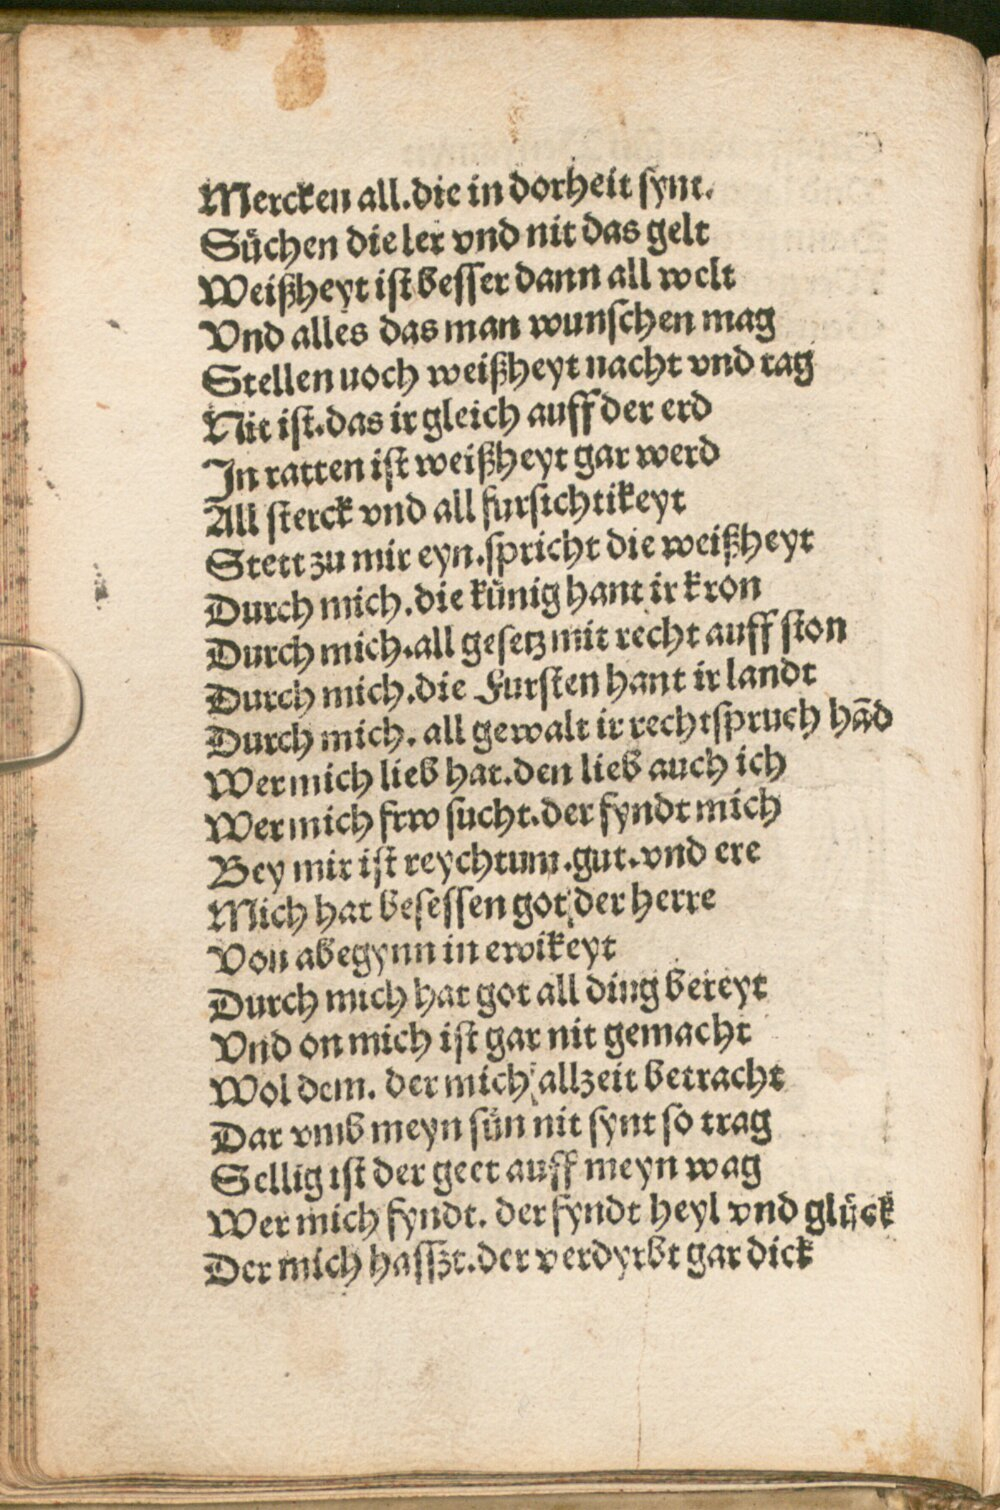 Mercken all.die in dorheit synt.
Sůchen die ler vnd nit das gelt
Weißheyt ist besser dann all welt
Vnd alles das man wunschen mag
Stellen noch weißheyt nacht vnd tag
Nit ist.das ir gleich auff der erd
In ratten ist weißheyt gar werd
All sterck vnd all fursichtikeyt
Stett zu mir eyn.spricht die weißheyt
Durch mich.die kůnig hant ir kron
Durch mich.all gesetz mit recht auff ston
Durch mich.die Fursten hant ir landt
Durch mich. all gewalt ir rechtspruch hād
Wer mich lieb hat.den lieb auch ich
Wer mich frw sucht.der fyndt mich
Bey mir ist reychtum.gut.vnd ere
Mich hat besessen got der herre
Von abegynn in ewikeyt
Durch mich hat got all ding bereyt
Vnd on mich ist gar nit gemacht
Wol dem. der mich allzeit betracht
Dar vmb meyn sůn nit synt so trag
Sellig ist der geet auff meyn wag
Wer mich fyndt. der fyndt heyl vnd glůck
Der mich hasszt.der verdyrbt gar dick